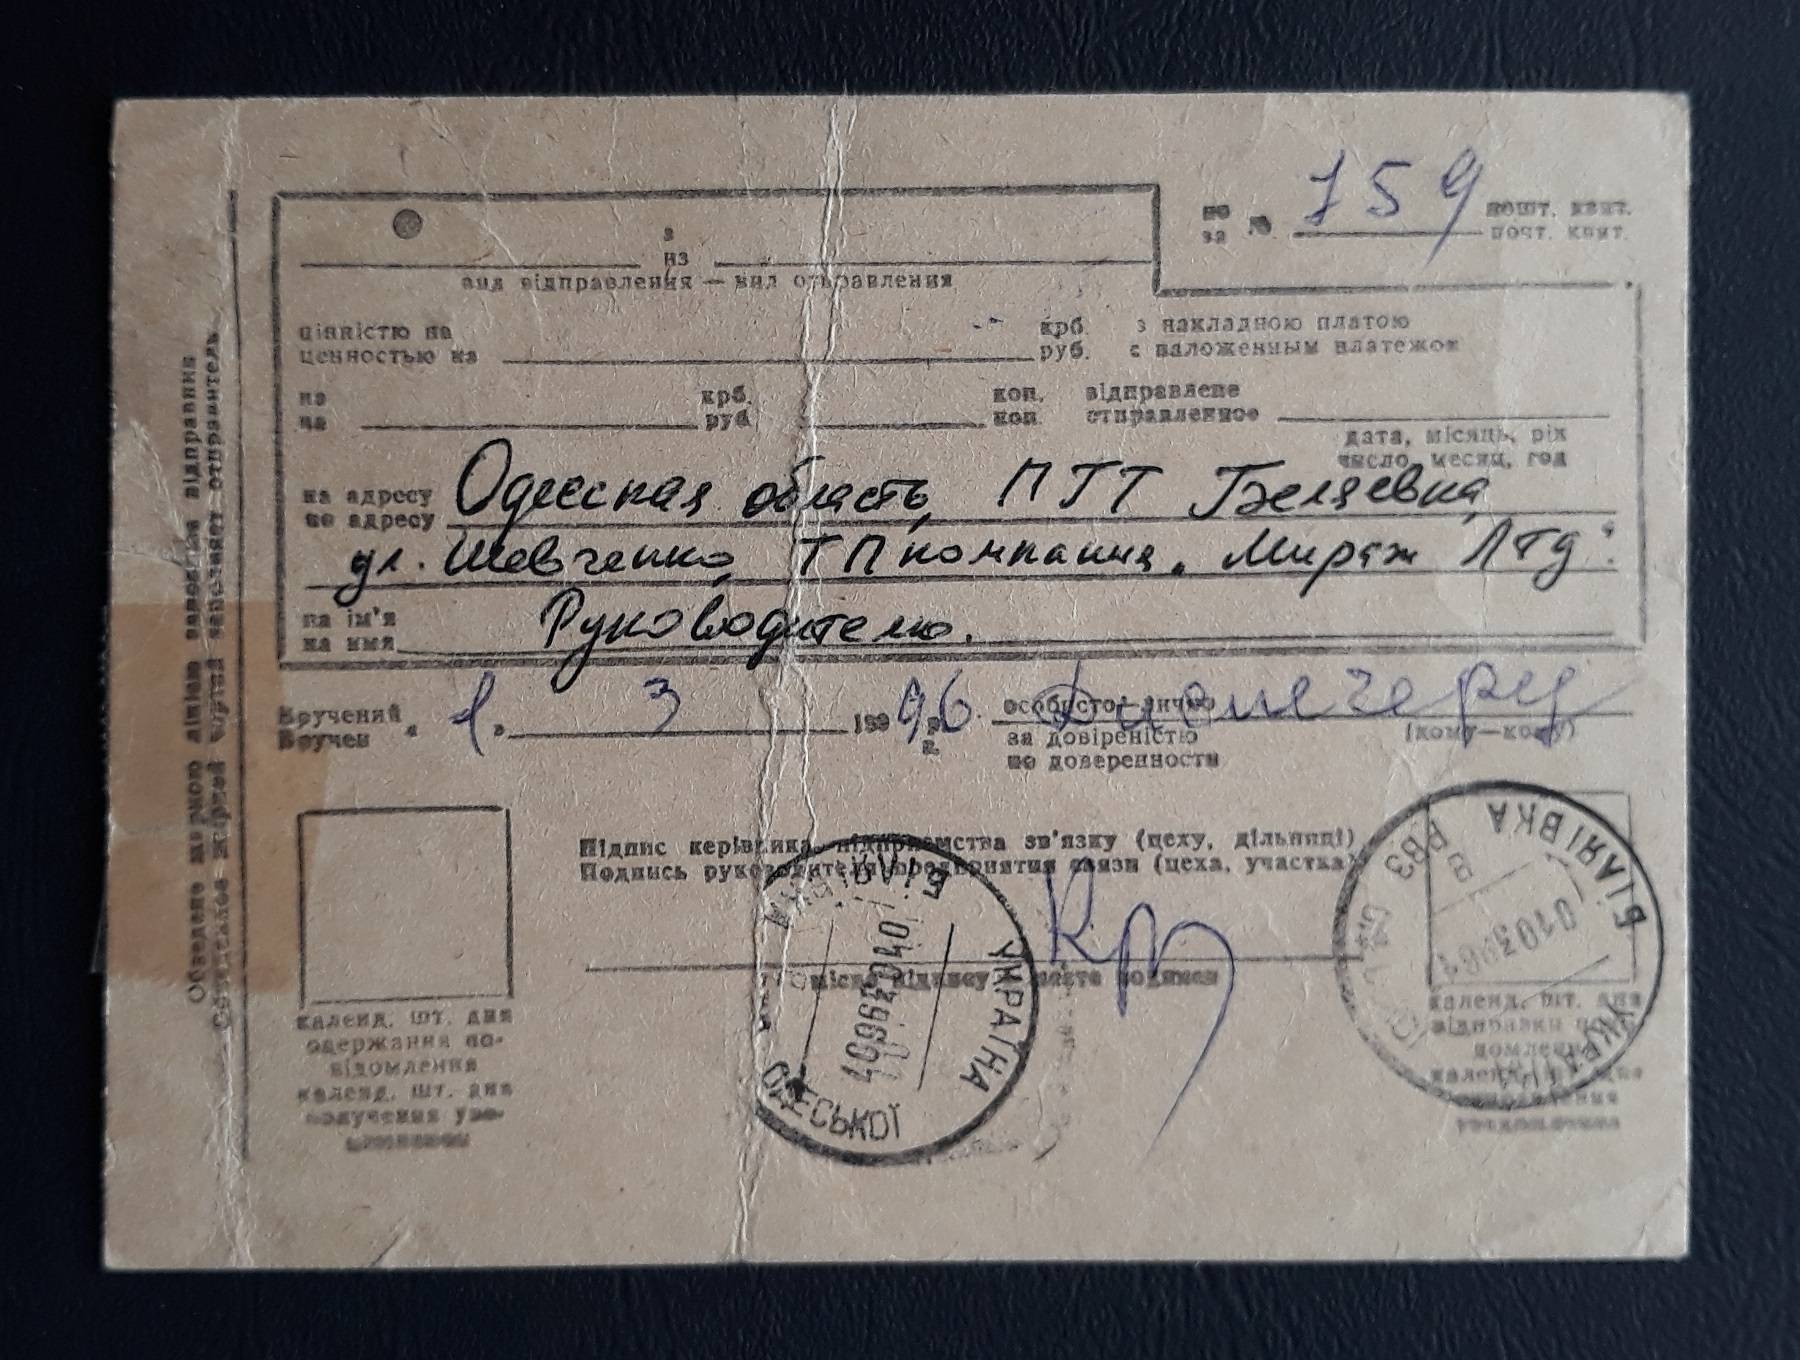 по № 759 пошт. квит.
за почт. квит.
з
из
вид відправлення — вид отправления
цінністю на крб. з накладною платою
ценностью на руб. с наложенным платежом
на крб. коп. відправлене
на руб. коп. отправленное
дата, місяць, рік
число, месяц, год
на адресу Одесская область, ПГТ Беляевка,
по адресу
ул. Шевченко, ТП компания „Мираж Лтд“.
на ім'я Руководителю.
на имя
Вручений „1„ 3 199 96 р. особисто—лично Диспетчеру
Вручен г. за довіреністю (кому—кому)
по доверенности
Підпис керівника підприємства зв'язку (цеху, дільниці)
Подпись руководителя предприятия связи (цеха, участка)
календ. шт. дня
одержання по-
відомлення
календ. шт. дня
получения уве-
домления
календ. шт. дня
відправки
Обведене жирною лінією заповнює відправник
Обведенное жирной чертой заполняет отправитель
УКРАЇНА
ОДЕСЬКОЇ
010396
БІЛЯЇВКА РВЗ
В
010396